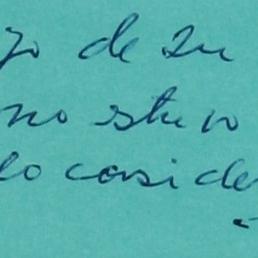 jo de su
no stuvo
lo conside